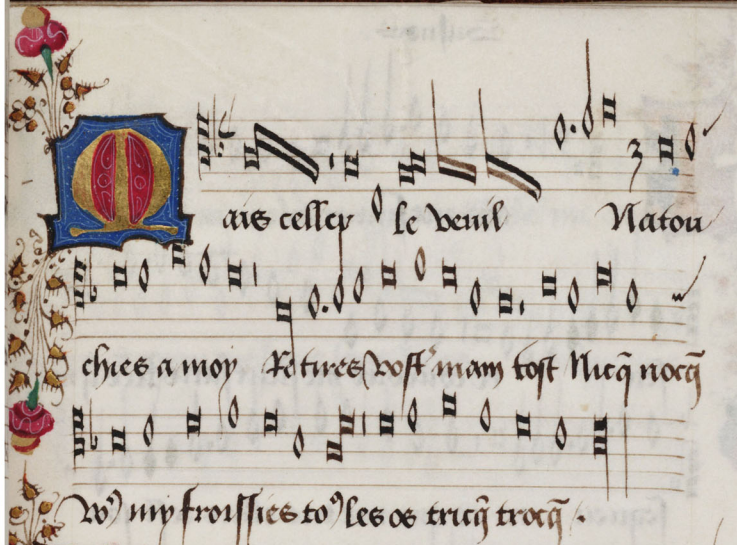 Mais cellez le veuil Natou
chies a moy Retires vostr main tost Nicq̄ nocq̄
Vo9 my froissies to9 les os tricq̄ trocq̄ .